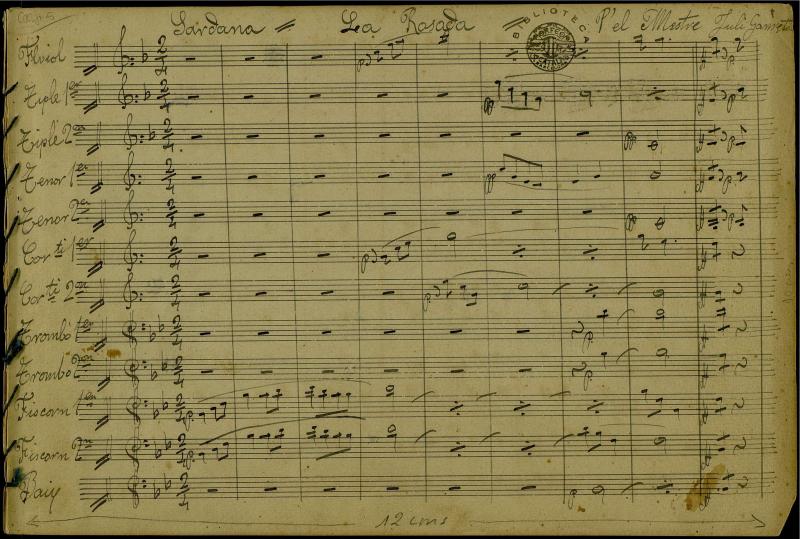 Sardana La Rosada P'el Mestre Juli Garreta
BIBLIOTECA
Fluviol
Tiple 1er
Tiple 2on
Tenor 1er
Tenor 2on
Corti 1er
Corti 2on
Trombó 1er
Trombó 2on
Fiscorn 1er
Fiscorn 2on
Baix
12 cms